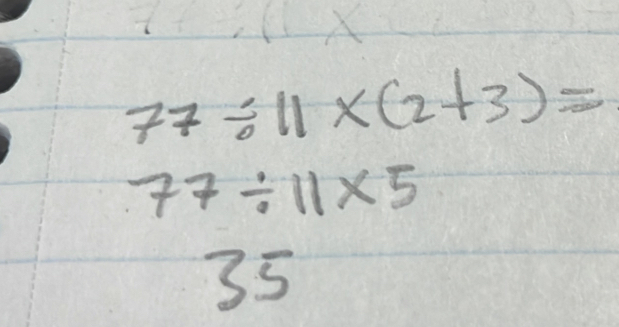 77÷11×(2+3)=
77÷11×5
35